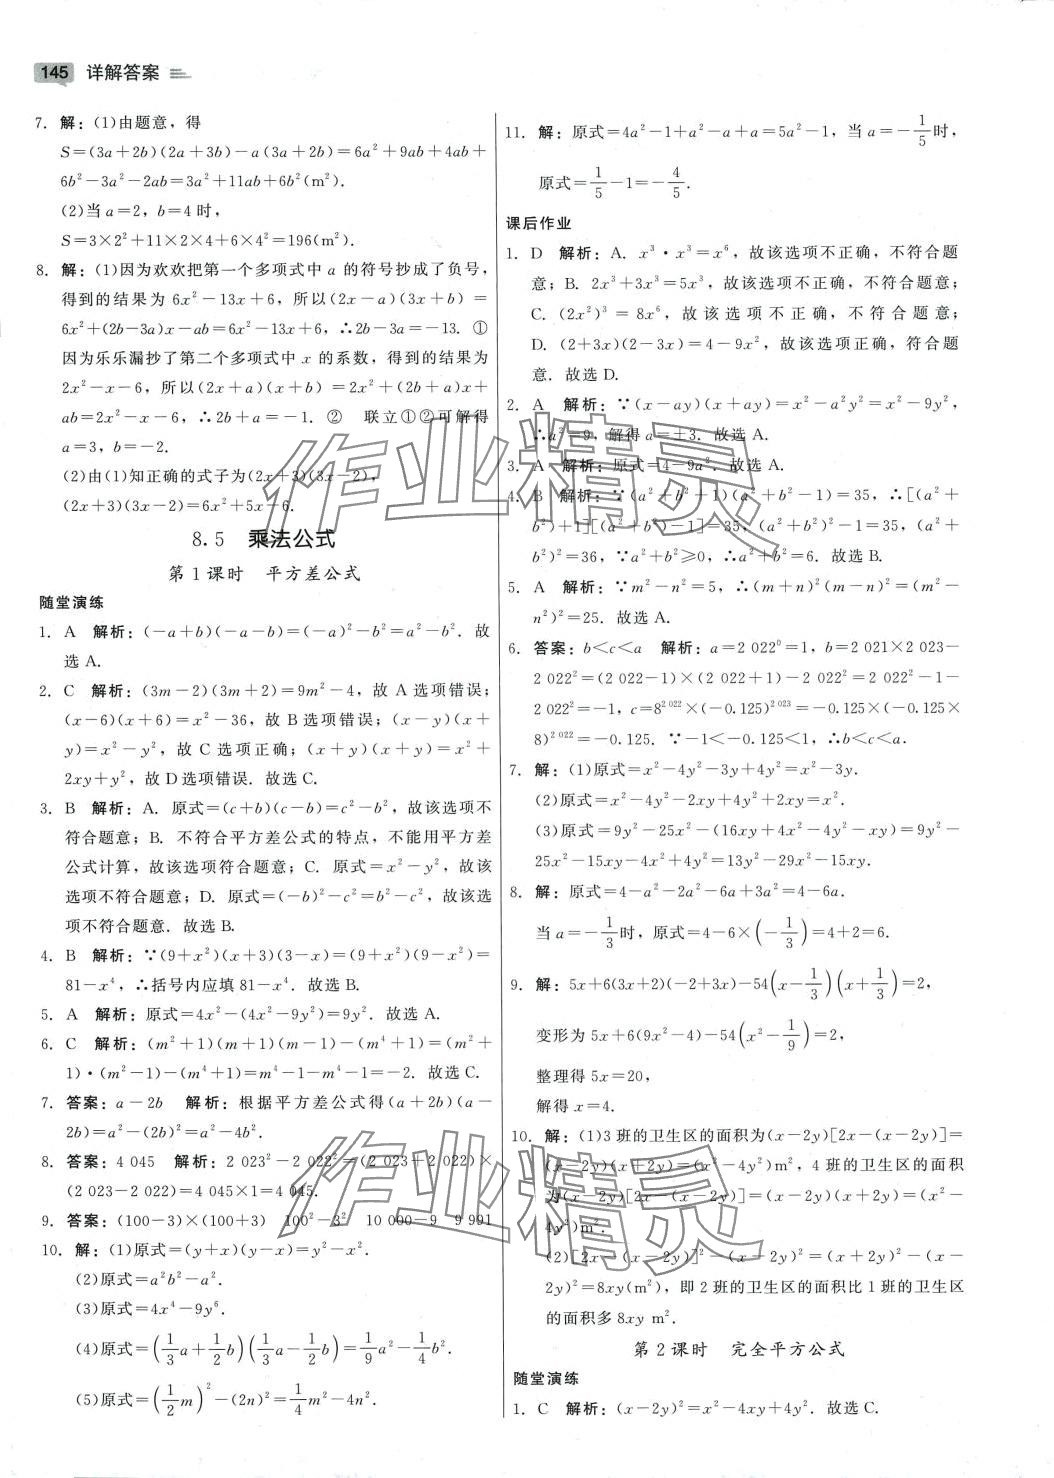 145 详解答案
7. 解:(1)由题意，得
S=(3a+2b)(2a+3b)-a(3a+2b)=6a²+9ab+4ab+
6b²-3a²-2ab=3a²+11ab+6b²(m²).
(2)当 a=2，b=4 时，
S=3×2²+11×2×4+6×4²=196(m²).
8. 解:(1)因为欢欢把第一个多项式中 a 的符号抄成了负号，
得到的结果为 6x²-13x+6，所以(2x-a)(3x+b)=
6x²+(2b-3a)x-ab=6x²-13x+6，∴2b-3a=-13. ①
因为乐乐漏抄了第二个多项式中 x 的系数，得到的结果为
2x²-x-6，所以(2x+a)(x+b)=2x²+(2b+a)x+
ab=2x²-x-6，∴2b+a=-1. ② 联立①②可解得
a=3，b=-2.
(2)由(1)知正确的式子为(2x+3)(3x-2)，
(2x+3)(3x-2)=6x²+5x-6.
8.5 乘法公式
第 1 课时 平方差公式
随堂演练
1. A 解析:(-a+b)(-a-b)=(-a)²-b²=a²-b². 故
选 A.
2. C 解析:(3m-2)(3m+2)=9m²-4，故 A 选项错误；
(x-6)(x+6)=x²-36，故 B 选项错误；(x-y)(x+
y)=x²-y²，故 C 选项正确；(x+y)(x+y)=x²+
2xy+y²，故 D 选项错误. 故选 C.
3. B 解析:A. 原式=(c+b)(c-b)=c²-b²，故该选项不
符合题意；B. 不符合平方差公式的特点，不能用平方差
公式计算，故该选项符合题意；C. 原式=x²-y²，故该
选项不符合题意；D. 原式=(-b)²-c²=b²-c²，故该选
项不符合题意. 故选 B.
4. B 解析:∵(9+x²)(x+3)(3-x)=(9+x²)(9-x²)=
81-x⁴，∴括号内应填 81-x⁴. 故选 B.
5. A 解析:原式=4x²-(4x²-9y²)=9y². 故选 A.
6. C 解析:(m²+1)(m+1)(m-1)-(m⁴+1)=(m²+
1)·(m²-1)-(m⁴+1)=m⁴-1-m⁴-1=-2. 故选 C.
7. 答案:a-2b 解析:根据平方差公式得(a+2b)(a-
2b)=a²-(2b)²=a²-4b².
8. 答案:4 045 解析:2 023²-2 022²=(2 023+2 022)×
(2 023-2 022)=4 045×1=4 045.
9. 答案:(100-3)×(100+3) 100²-3² 10 000-9 9 991
10. 解:(1)原式=(y+x)(y-x)=y²-x².
(2)原式=a²b²-a².
(3)原式=4x⁴-9y⁶.
(4)原式=(1/3 a+1/2 b)(1/3 a-1/2 b)=1/9 a²-1/4 b².
(5)原式=(1/2 m)²-(2n)²=1/4 m²-4n².
11. 解:原式=4a²-1+a²-a+a=5a²-1，当 a=-1/5时，
原式=1/5-1=-4/5.
课后作业
1. D 解析:A. x³·x³=x⁶，故该选项不正确，不符合题
意；B. 2x³+3x³=5x³，故该选项不正确，不符合题意；
C. (2x²)³=8x⁶，故该选项不正确，不符合题意；
D. (2+3x)(2-3x)=4-9x²，故该选项正确，符合题
意. 故选 D.
2. A 解析:∵(x-ay)(x+ay)=x²-a²y²=x²-9y²，
∴a²=9，解得 a=±3. 故选 A.
3. A 解析:原式=4-9a². 故选 A.
4. B 解析:∵(a²+b²+1)(a²+b²-1)=35，∴[(a²+
b²)+1][(a²+b²)-1]=35，(a²+b²)²-1=35，(a²+
b²)²=36，∵a²+b²≥0，∴a²+b²=6. 故选 B.
5. A 解析:∵m²-n²=5，∴(m+n)²(m-n)²=(m²-
n²)²=25. 故选 A.
6. 答案:b<c<a 解析:a=2 022⁰=1，b=2 021×2 023-
2 022²=(2 022-1)×(2 022+1)-2 022²=2 022²-1-
2 022²=-1，c=8²⁰²²×(-0.125)²⁰²³=-0.125×(-0.125×
8)²⁰²²=-0.125. ∵-1<-0.125<1，∴b<c<a.
7. 解:(1)原式=x²-4y²-3y+4y²=x²-3y.
(2)原式=x²-4y²-2xy+4y²+2xy=x².
(3)原式=9y²-25x²-(16xy+4x²-4y²-xy)=9y²-
25x²-15xy-4x²+4y²=13y²-29x²-15xy.
8. 解:原式=4-a²-2a²-6a+3a²=4-6a.
当 a=-1/3时，原式=4-6×(-1/3)=4+2=6.
9. 解:5x+6(3x+2)(-2+3x)-54(x-1/3)(x+1/3)=2，
变形为 5x+6(9x²-4)-54(x²-1/9)=2，
整理得 5x=20，
解得 x=4.
10. 解:(1)3 班的卫生区的面积为(x-2y)[2x-(x-2y)]=
(x-2y)(x+2y)=(x²-4y²)m²，4 班的卫生区的面积
为(x-2y)[2x-(x-2y)]=(x-2y)(x+2y)=(x²-
4y²)m².
(2)[2x-(x-2y)]²-(x-2y)²=(x+2y)²-(x-
2y)²=8xy(m²)，即 2 班的卫生区的面积比 1 班的卫生区
的面积多 8xy m².
第 2 课时 完全平方公式
随堂演练
1. C 解析:(x-2y)²=x²-4xy+4y². 故选 C.
作业精灵
作业精灵